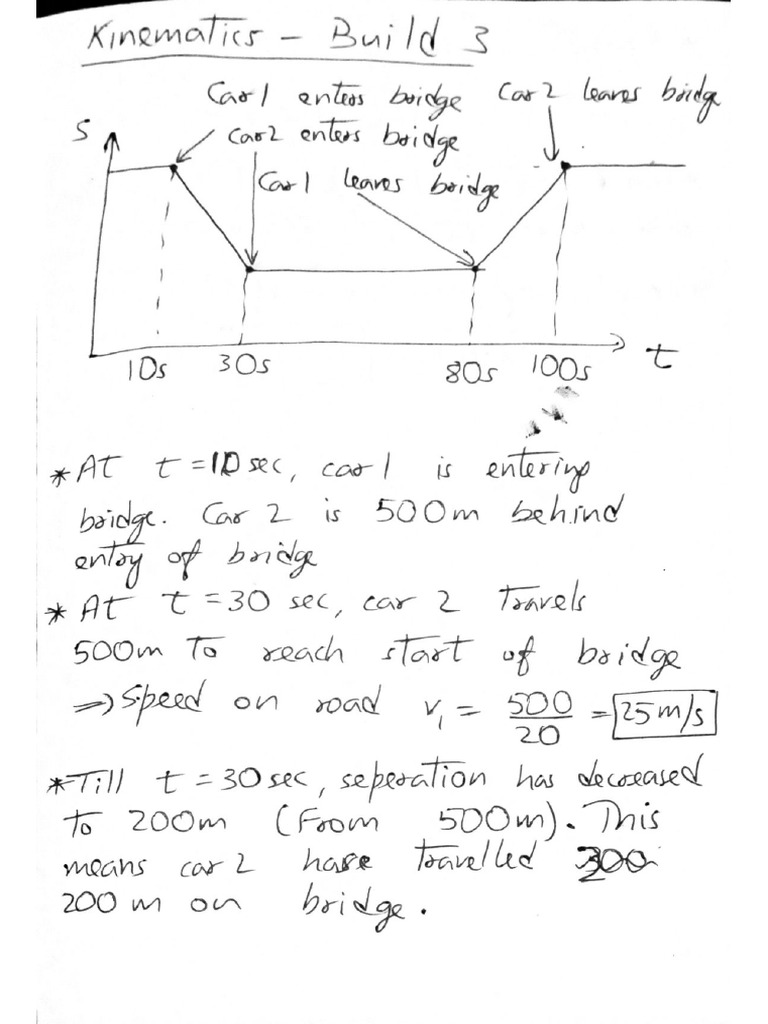 Kinematics - Build 3
Car 1 enters bridge
Car 2 leaves bridge
S
Car 2 enters bridge
Car 1 leaves bridge
10s
30s
80s
100s
t
* At t = 10 sec, car 1 is entering
bridge. Car 2 is 500m behind
entry of bridge
* At t = 30 sec, car 2 travels
500m to reach start of bridge
⇒ Speed on road v₁ = 500/20 = 25 m/s
* Till t = 30 sec, seperation has decreased
to 200m (From 500m). This
means car 2 have travelled
200 m on bridge.